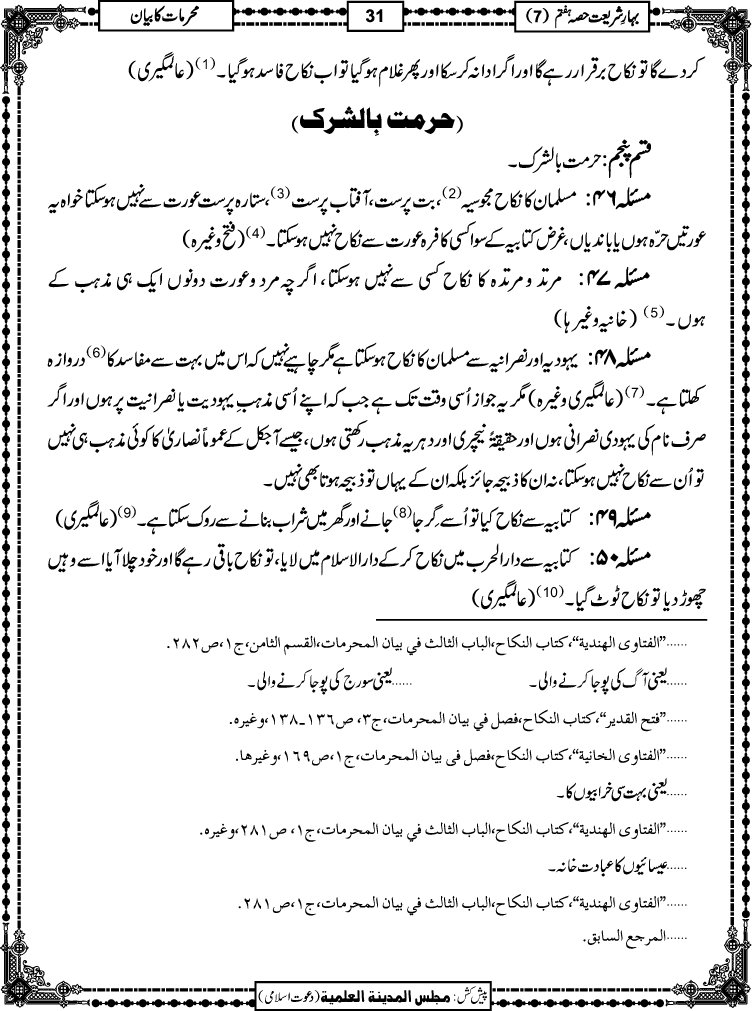 بہارِ شریعت حصہ ہفتم (7)
31
محرمات کا بیان
کردے گا تو نکاح برقرار رہے گا اور اگر ادا نہ کرسکا اور پھر غلام ہوگیا تو اب نکاح فاسد ہوگیا۔(1) (عالمگیری)
(حرمت بِالشرک)
قسم پنجم: حرمت بالشرک۔
مسئلہ ۴۶: مسلمان کا نکاح مجوسیہ(2)، بت پرست، آفتاب پرست(3)، ستارہ پرست عورت سے نہیں ہوسکتا خواہ یہ
عورتیں حرّہ ہوں یا باندیاں، غرض کتابیہ کے سوا کسی کافرہ عورت سے نکاح نہیں ہوسکتا۔(4) (فتح وغیرہ)
مسئلہ ۴۷: مرتد و مرتدہ کا نکاح کسی سے نہیں ہوسکتا، اگرچہ مرد و عورت دونوں ایک ہی مذہب کے
ہوں۔(5) (خانیہ وغیرہا)
مسئلہ ۴۸: یہودیہ اور نصرانیہ سے مسلمان کا نکاح ہوسکتا ہے مگر چاہیے نہیں کہ اس میں بہت سے مفاسد کا(6) دروازہ
کھلتا ہے۔(7) (عالمگیری وغیرہ) مگر یہ جواز اُسی وقت تک ہے جب کہ اپنے اُسی مذہبِ یہودیت یا نصرانیت پر ہوں اور اگر
صرف نام کی یہودی نصرانی ہوں اور حقیقۃً نیچری اور دہریہ مذہب رکھتی ہوں، جیسے آجکل کے عموماً نصاریٰ کا کوئی مذہب ہی نہیں
تو اُن سے نکاح نہیں ہوسکتا، نہ ان کا ذبیحہ جائز بلکہ ان کے یہاں تو ذبیحہ ہوتا بھی نہیں۔
مسئلہ ۴۹: کتابیہ سے نکاح کیا تو اُسے گِرجا(8) جانے اور گھر میں شراب بنانے سے روک سکتا ہے۔(9) (عالمگیری)
مسئلہ ۵۰: کتابیہ سے دارالحرب میں نکاح کرکے دارالاسلام میں لایا، تو نکاح باقی رہے گا اور خود چلا آیا اسے وہیں
چھوڑ دیا تو نکاح ٹوٹ گیا۔(10) (عالمگیری)
......”الفتاوی الهندية“، كتاب النكاح، الباب الثالث في بيان المحرمات، القسم الثامن، ج١، ص٢٨٢.
......یعنی آگ کی پوجا کرنے والی۔ ......یعنی سورج کی پوجا کرنے والی۔
......”فتح القدير“، كتاب النكاح، فصل في بيان المحرمات، ج٣، ص١٣٦ـ١٣٨، وغيره.
......”الفتاوی الخانية“، كتاب النكاح، فصل فی بيان المحرمات، ج١، ص١٦٩، وغيرها.
......یعنی بہت سی خرابیوں کا۔
......”الفتاوی الهندية“، كتاب النكاح، الباب الثالث في بيان المحرمات، ج١، ص٢٨١، وغيره.
......عیسائیوں کا عبادت خانہ۔
......”الفتاوی الهندية“، كتاب النكاح، الباب الثالث في بيان المحرمات، ج١، ص٢٨١.
......المرجع السابق.
پیش کش: مجلس المدينة العلمية (دعوت اسلامی)